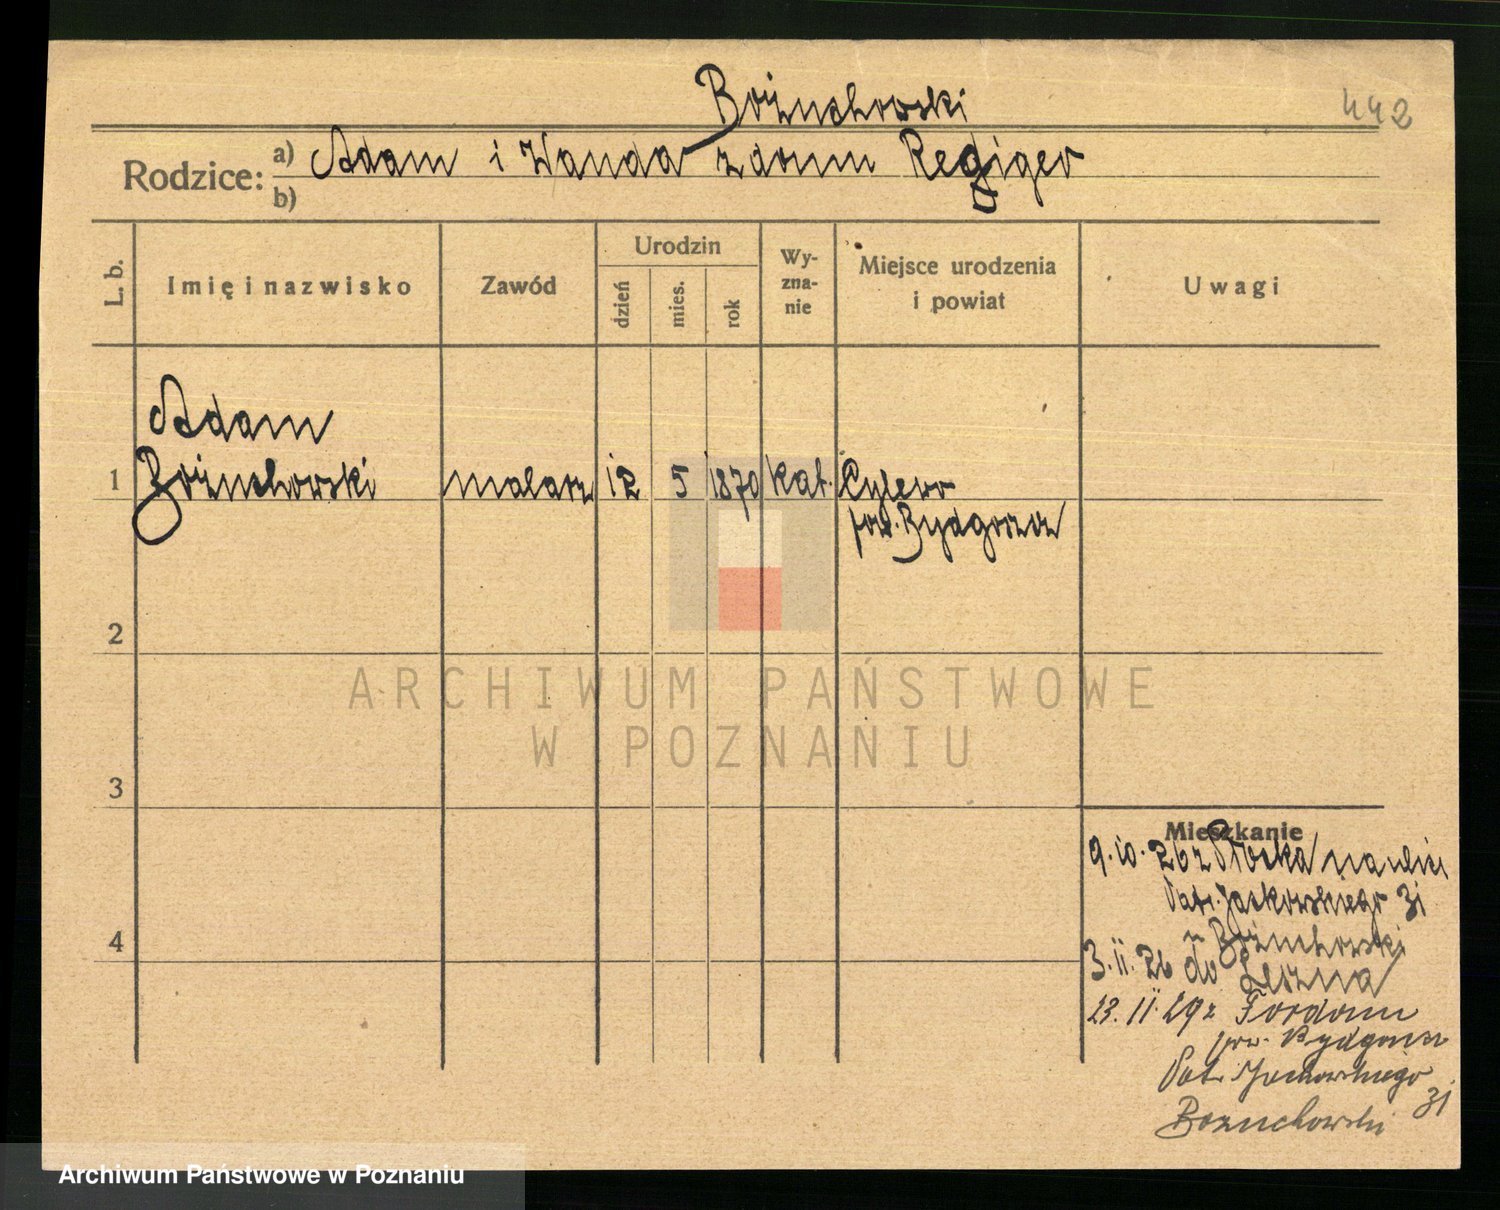 Bożuchowski
442
Rodzice:
a) Adam i Wanda z domu Regiger
b)
L. b.
Imię i nazwisko
Zawód
Urodzin
dzień
mies.
rok
Wy-
zna-
nie
Miejsce urodzenia
i powiat
Uwagi
Adam
1 Bożuchowski malarz 12 5 1870 kat.
pow. Bydgoszcz
2
3
4
Mieszkanie
9.10.26 z Płocka na ulicę
Patr. Jackowskiego 31
u Bożuchowski
3.11.26 do Leszna
23.11.29 z Fordonu
pow. Bydgoszcz
Patr. Jackowskiego
31
Bożuchowski
ARCHIWUM PAŃSTWOWE
W POZNANIU
Archiwum Państwowe w Poznaniu